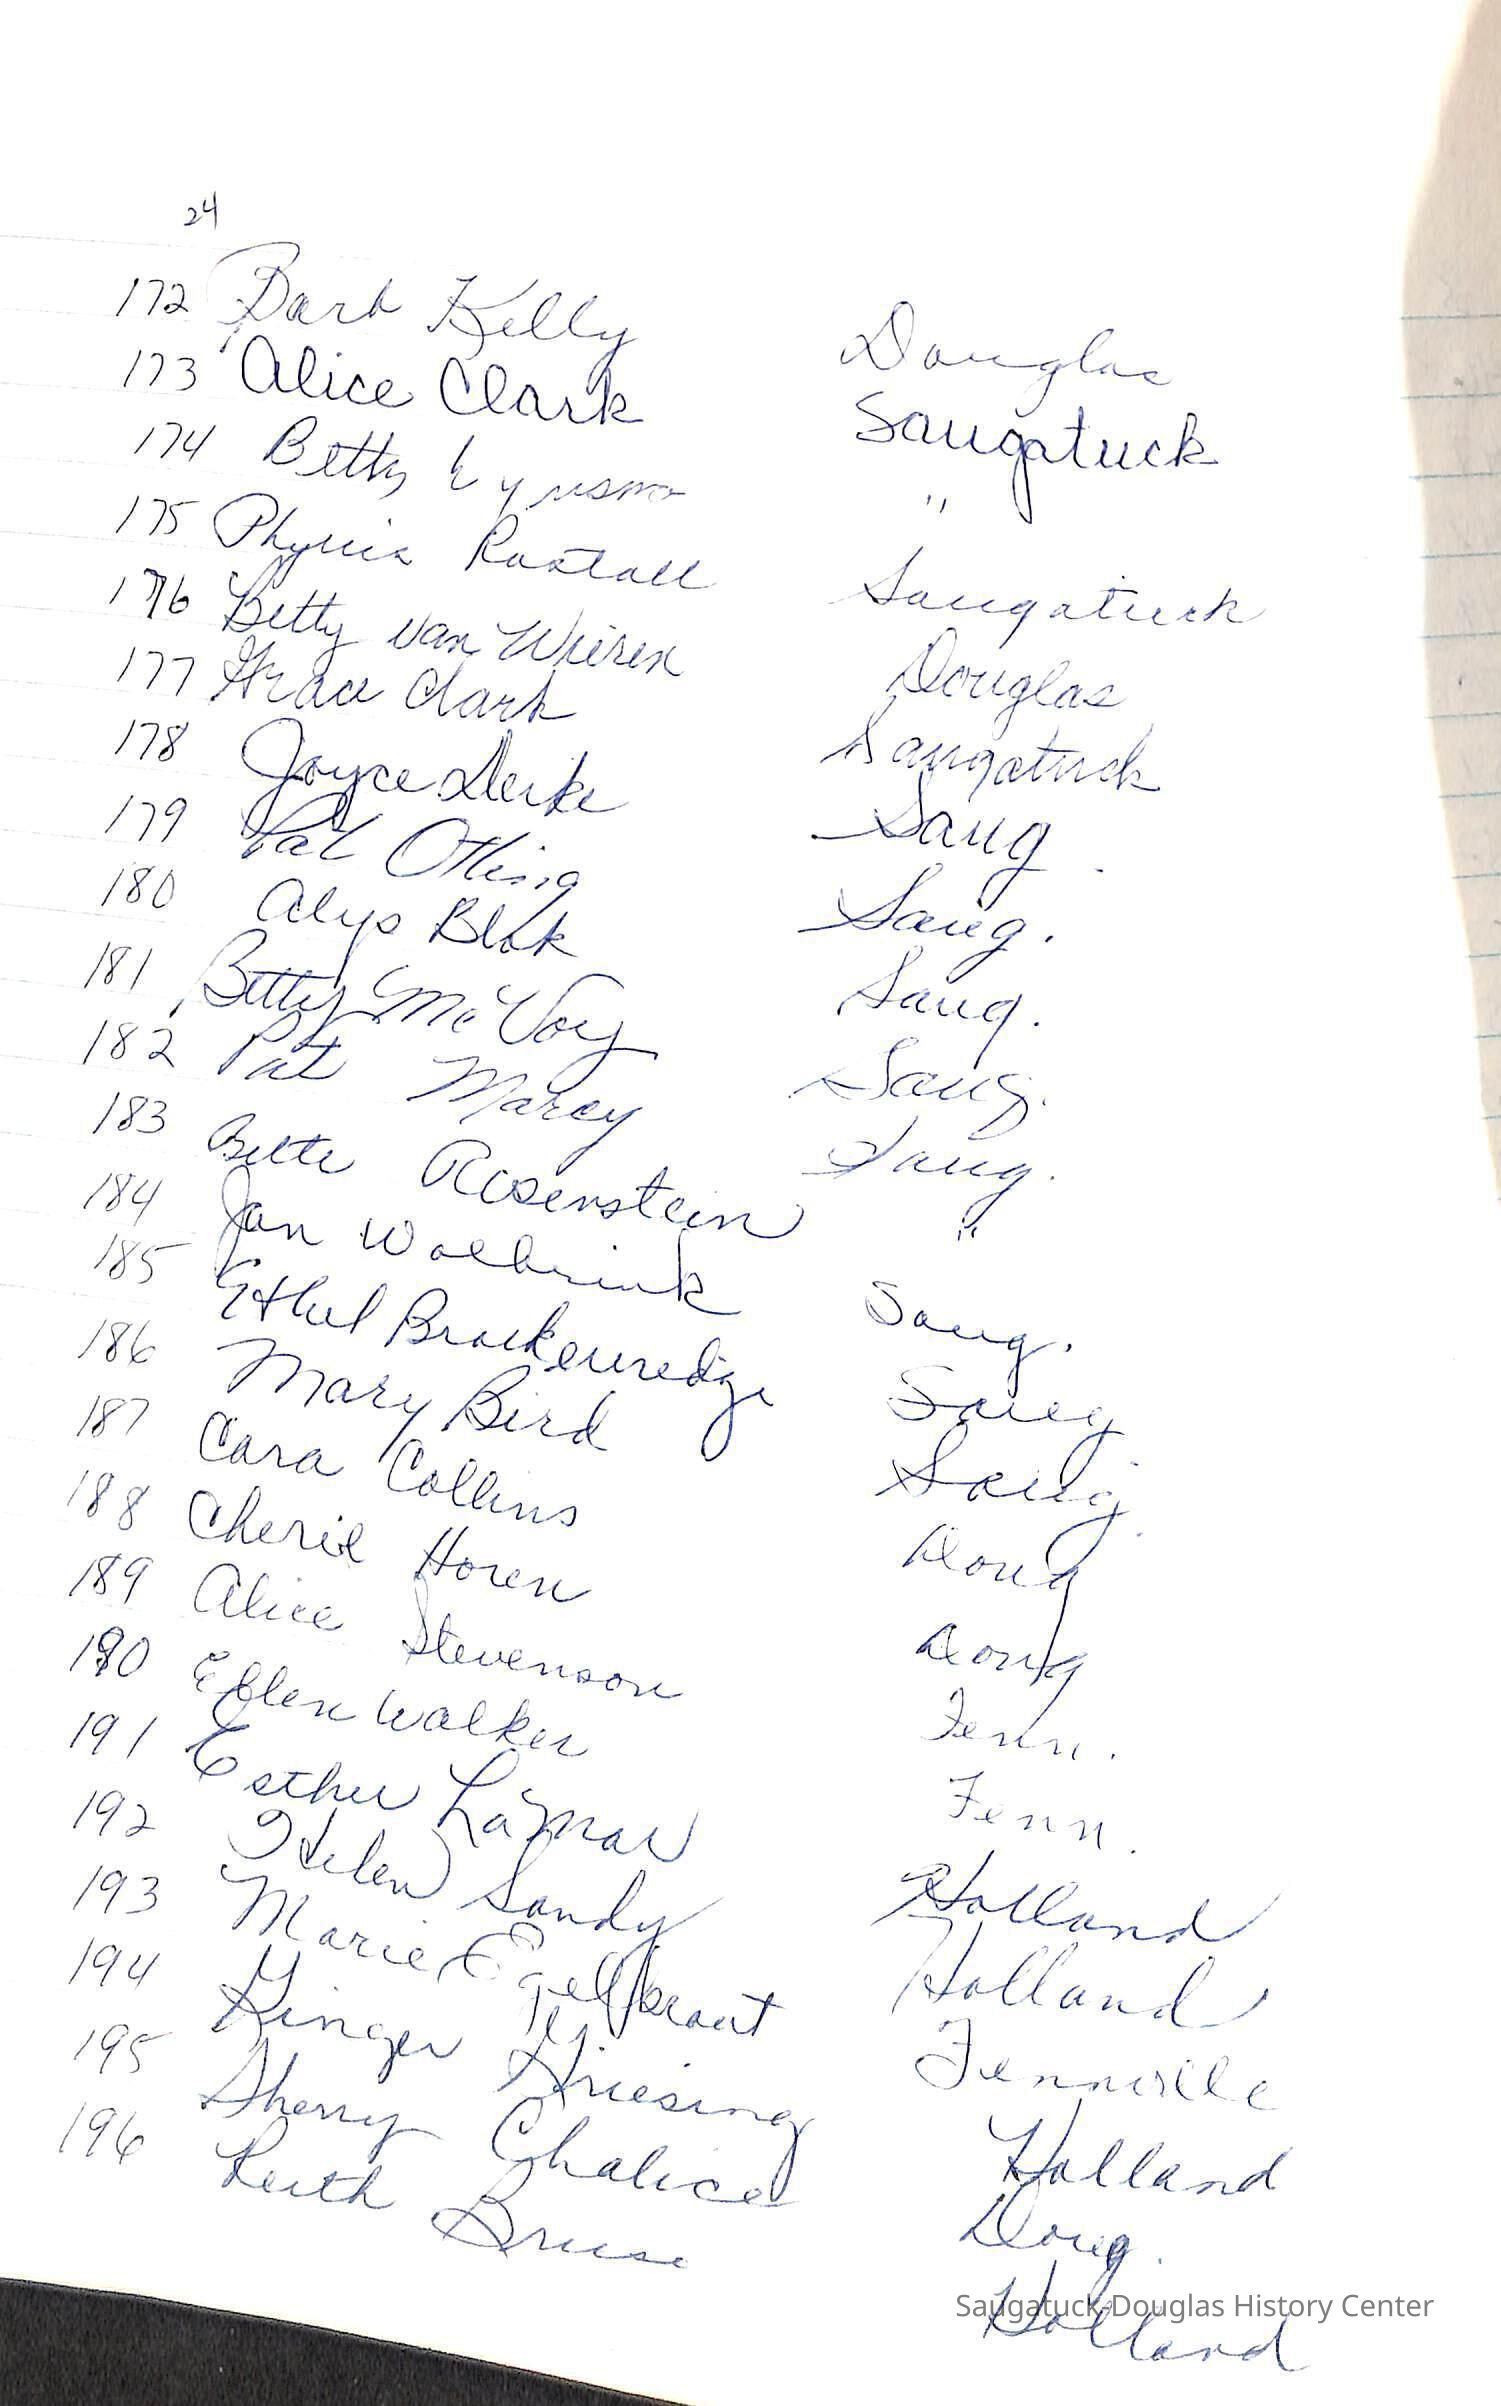 24
172 Barb Kelly Douglas
173 Alice Clark Saugatuck
174 Betty "
175 Phyllis Rastall Saugatuck
176 Betty Van Wieren Douglas
177 Grace Clark Saugatuck
178 Joyce Derke Saug.
179 Pat Otling Saug.
180 Alys Blok Saug.
181 Betty McVoy Saug.
182 Pat Marcy Saug.
183 Bette Rosenstein "
184 Jan Wolbrink Saug.
185 Ethel Brackenredge Saug
186 Mary Bird Saug.
187 Cara Collins Doug
188 Cherie Horen Doug
189 Alice Stevenson Fenn.
190 Ellen Walker Fenn.
191 Esther LaMar Holland
192 Helen Sandy Holland
193 Marie Egelkraut Fennville
194 Ginger Griesing Holland
195 Sherry Chalice Doug.
196 Ruth Bruse Holland
Saugatuck-Douglas History Center